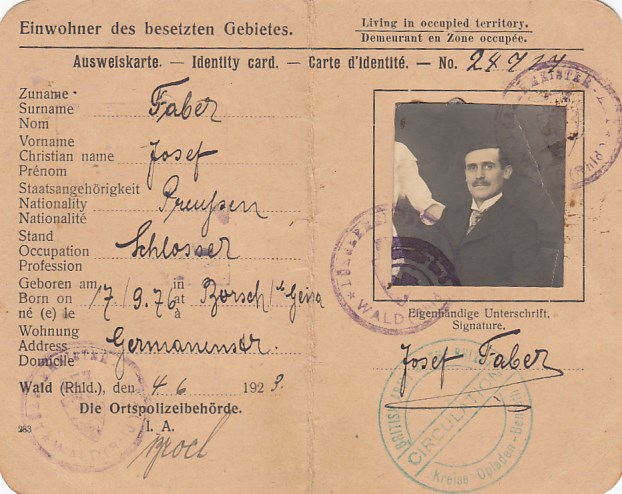 Einwohner des besetzten Gebietes.
Living in occupied territory.
Demeurant en Zone occupée.
Ausweiskarte. — Identity card. — Carte d'identité. — No. 24717
Zuname
Surname Faber
Nom
Vorname
Christian name Josef
Prénom
Staatsangehörigkeit
Nationality Preußen
Nationalité
Stand
Occupation Schlosser
Profession
Geboren am in
Born on 17/9.76 at Borsch/
né (e) le à
Wohnung
Address Germanenstr.
Domicile
Wald (Rhld.), den 4 6 1923.
Die Ortspolizeibehörde.
283 I. A.
Eigenhändige Unterschrift.
Signature.
Josef Faber
BÜRGERMEISTER
WALD (Rhld)
BRITISH
CIRCULATION
Kreise Opladen-